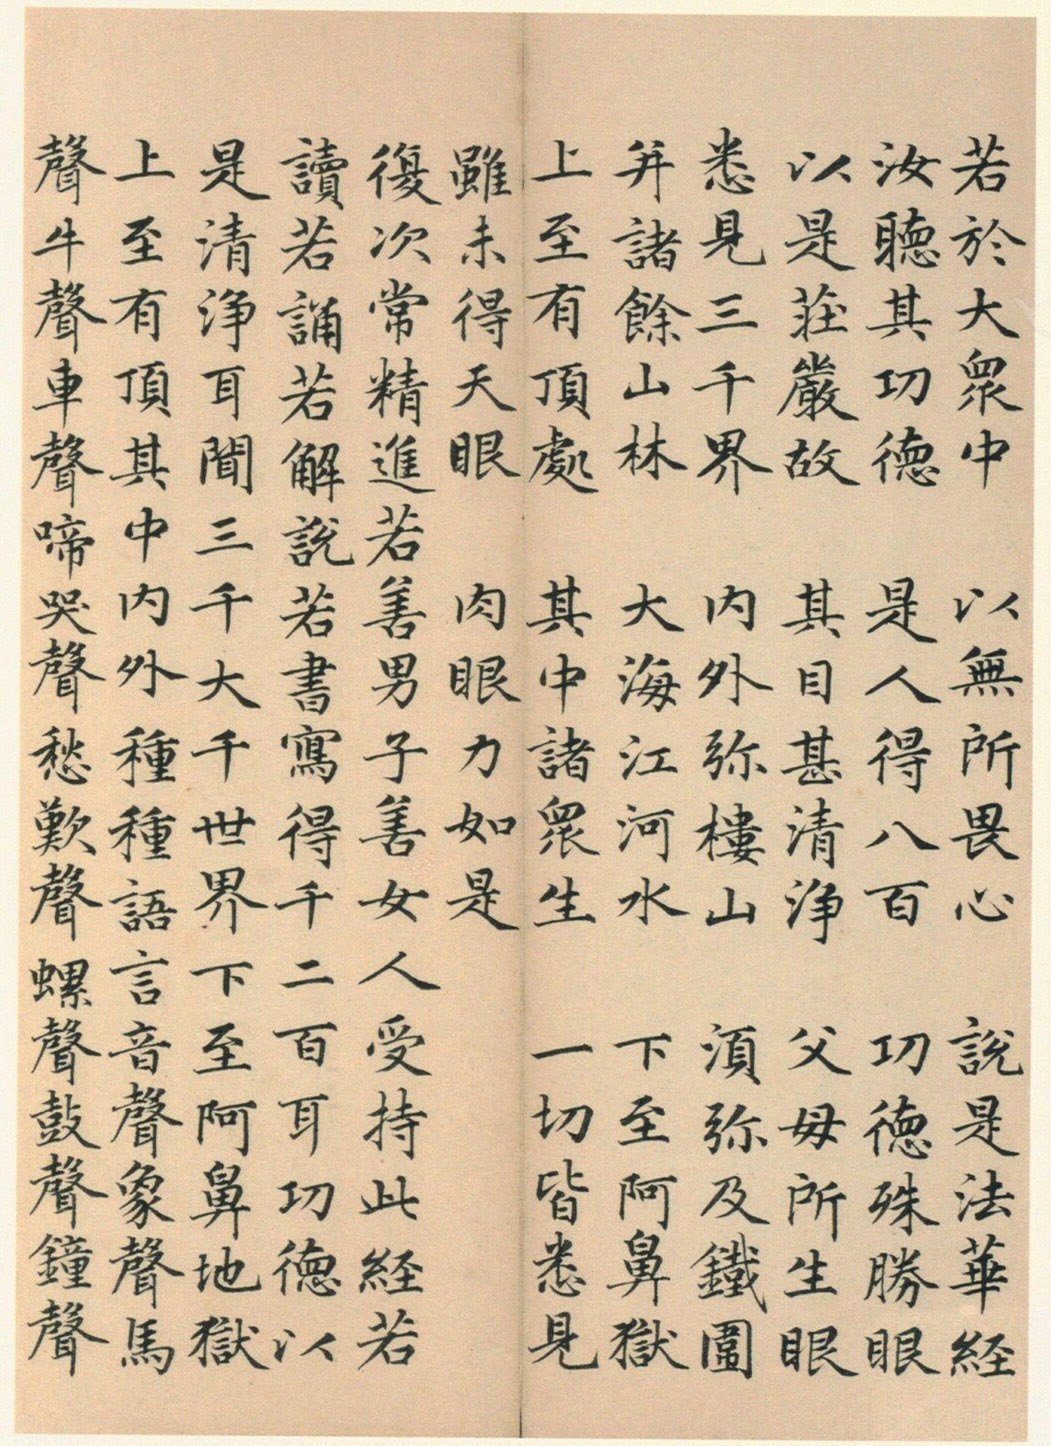 若於大衆中　以無所畏心　說是法華経
汝聴其功徳　是人得八百　功徳殊勝眼
以是荘嚴故　其目甚清浄　父母所生眼
悉見三千界　内外弥樓山　湏弥及鐵圍
并諸餘山林　大海江河水　下至阿鼻獄
上至有頂處　其中諸衆生　一切皆悉見
雖未得天眼　肉眼力如是
復次常精進若善男子善女人受持此経若
讀若誦若解說若書寫得千二百耳功徳以
是清浄耳聞三千大千世界下至阿鼻地獄
上至有頂其中内外種種語言音聲象聲馬
聲牛聲車聲啼哭聲愁歎聲螺聲鼓聲鐘聲